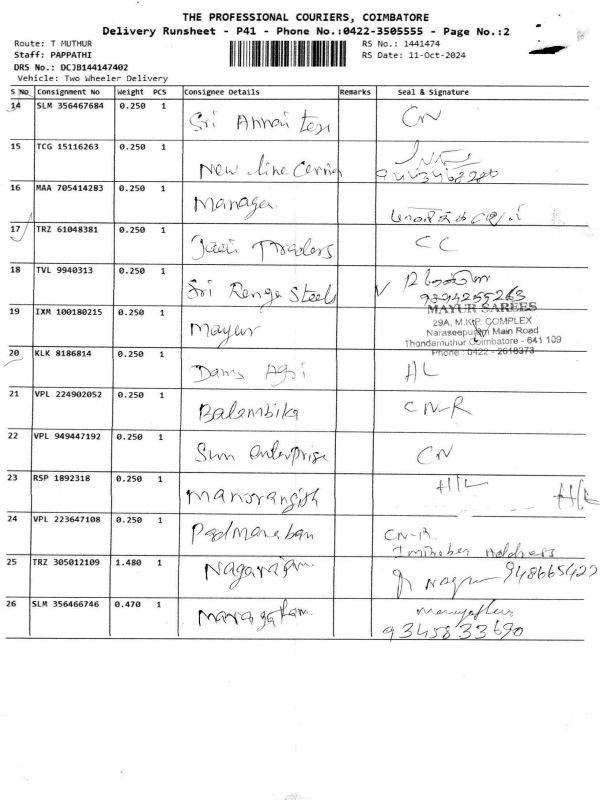 THE PROFESSIONAL COURIERS, COIMBATORE
Delivery Runsheet - P41 - Phone No.:0422-3505555 - Page No.:2
Route: T MUTHUR RS No.: 1441474
Staff: PAPPATHI RS Date: 11-Oct-2024
DRS No.: DCJB144147402
Vehicle: Two Wheeler Delivery
S No Consignment No Weight PCS Consignee Details Remarks Seal & Signature
14 SLM 356467684 0.250 1 Sri Annai Tex CN
15 TCG 15116263 0.250 1 New line
16 MAA 705414283 0.250 1 Manager
17 TRZ 61048381 0.250 1 Traders CC
18 TVL 9940313 0.250 1 Sri Renga Steels
9394255263
19 IXM 100180215 0.250 1 Mayur MAYUR SAREES
29A, M.K.P. COMPLEX
Naraseepuram Main Road
Thondamuthur Coimbatore - 641 109
Phone : 0422 - 2618373
20 KLK 8186814 0.250 1 Dams Agri HL
21 VPL 224902052 0.250 1 Balambika CN-R
22 VPL 949447192 0.250 1 Sun enterprise CN
23 RSP 1892318 0.250 1 H/L
H/L
24 VPL 223647108 0.250 1 Padmanaban CN-R.
Address
25 TRZ 305012109 1.480 1 Nagarajan
26 SLM 356466746 0.470 1 Maragatham
9345833690